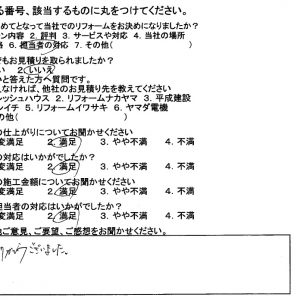 る番号、該当するものに丸をつけてください。
めてとなって当社でのリフォームをお決めになりましたか?
ン内容 2. 評判 3. サービスや対応 4. 当社の場所
格 6. 担当者の対応 7. その他( )
でもお見積りを取られましたか?
い 2. いいえ
いと答えた方へ質問です。
えなければ、他社のお見積り先を教えてください
レッシュハウス 2. リフォームナカヤマ 3. 平成建設
レイチ 5. リフォームイワサキ 6. ヤマダ電機
の他( )
の仕上がりについてお聞かせください
変満足 2. 満足 3. やや不満 4. 不満
の対応はいかがでしたか?
変満足 2. 満足 3. やや不満 4. 不満
の施工金額についてお聞かせください
変満足 2. 満足 3. やや不満 4. 不満
担当者の対応はいかがでしたか?
変満足 2. 満足 3. やや不満 4. 不満
ご意見、ご要望、ご感想をお聞かせください。
りがとうございました。